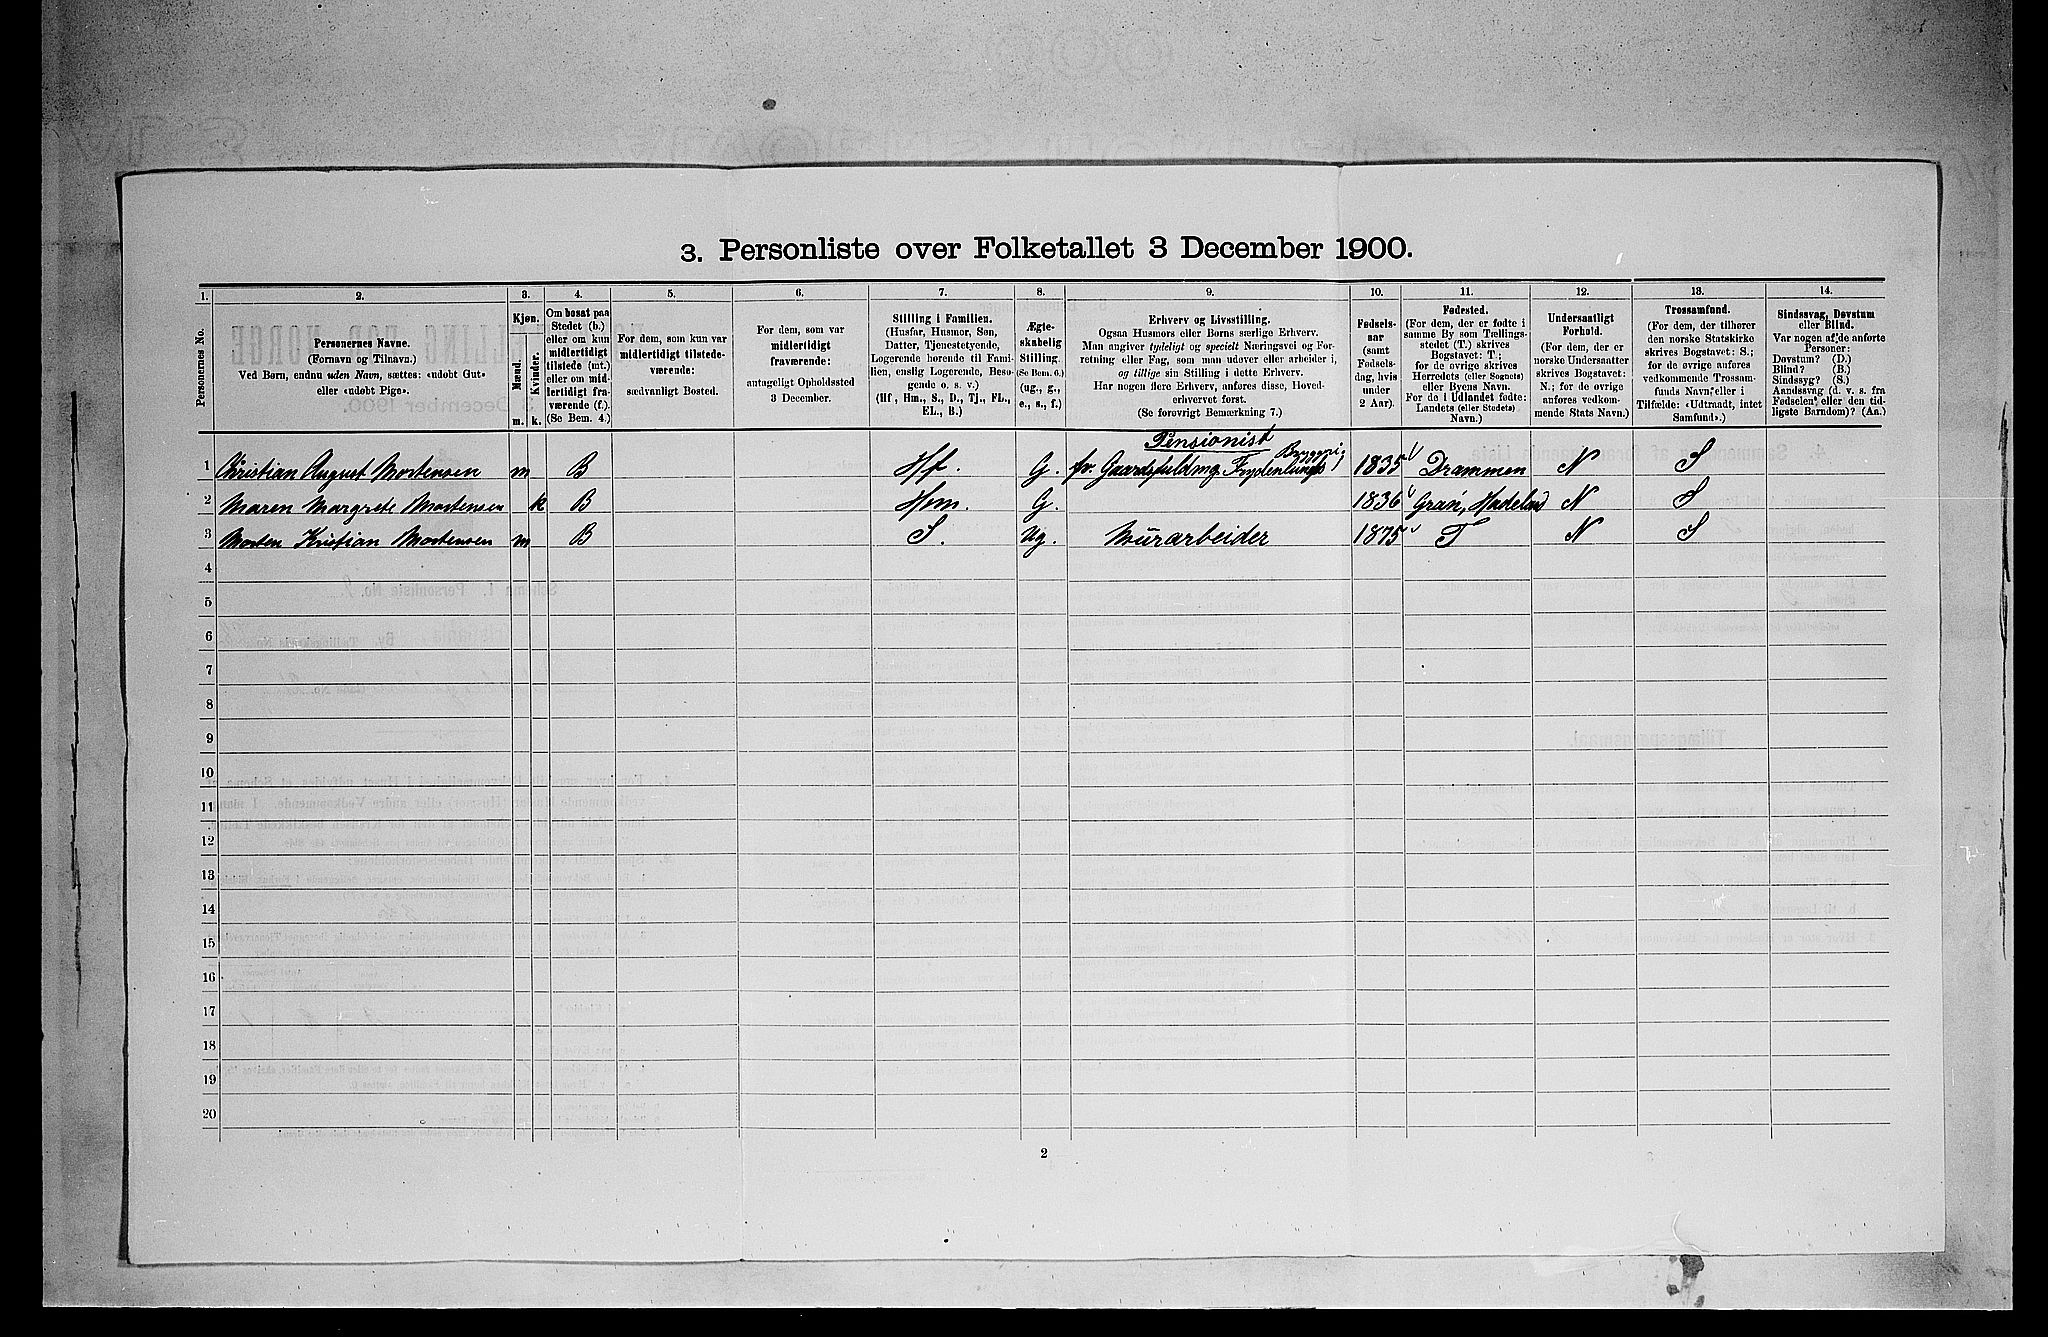 3. Personliste over Folketallet 3 December 1900.
1. 2. 3. 4. 5. 6. 7. 8. 9. 10. 11. 12. 13. 14.
Personernes No.
Personernes Navne.
(Fornavn og Tilnavn.)
Ved Børn, endnu uden Navn, sættes: «udøbt Gut»
eller «udøbt Pige».
Kjøn.
Mænd.
Kvinder.
m. k.
Om bosat paa
Stedet (b.)
eller om kun
midlertidigt
tilstede (mt.)
eller om mid-
lertidigt fra-
værende (f.)
(Se Bem. 4.)
For dem, som kun var
midlertidigt tilstede-
værende:
sædvanligt Bosted.
For dem, som var
midlertidigt
fraværende:
antageligt Opholdssted
3 December.
Stilling i Familien.
(Husfar, Husmor, Søn,
Datter, Tjenestetyende,
Logerende hørende til Fami-
lien, enslig Logerende, Besø-
gende o. s. v.)
(Hf., Hm., S., D., Tj., FL.,
EL., B.)
Ægte-
skabelig
Stilling.
(Se Bem. 6.)
(ug., g.,
e., s., f.)
Erhverv og Livsstilling.
Ogsaa Husmors eller Børns særlige Erhverv.
Man angiver tydeligt og specielt Næringsvei og For-
retning eller Fag, som man udøver eller arbeider i,
og tillige sin Stilling i dette Erhverv.
Har nogen flere Erhverv, anføres disse, Hoved-
erhvervet først.
(Se forøvrigt Bemærkning 7.)
Fødsels-
aar
(samt
Fødsels-
dag, hvis
under
2 Aar).
Fødested.
(For dem, der er fødte i
samme By som Tællings-
stedet (T.) skrives
Bogstavet: T;
for de øvrige skrives
Herredets (eller Sognets)
eller Byens Navn.
For de i Udlandet fødte:
Landets (eller Stedets)
Navn.)
Undersaatligt
Forhold.
(For dem, der er
norske Undersaatter
skrives Bogstavet:
N.; for de øvrige
anføres vedkom-
mende Stats Navn.)
Trossamfund.
(For dem, der tilhører
den norske Statskirke
skrives Bogstavet: S.;
for de øvrige anføres
vedkommende Trossam-
funds Navn, eller i
Tilfælde: «Udtraadt, intet
Samfund».)
Sindssvag, Døvstum
eller Blind.
Var nogen af de anførte
Personer:
Døvstum? (D.)
Blind? (B.)
Sindssyg? (S.)
Aandssvag (d. v. s. fra
Fødselen eller den tid-
ligste Barndom)? (Aa.)
Pensionist
1 Christian August Mortensen m B Hf. G. fv. Gaardsfuldmg Frydenlunds Bryggeri 1835 Drammen N S
2 Maren Margrete Mortensen k B Hm. G. 1836 Gran, Hadeland N S
3 Morten Kristian Mortensen m B S. Ug. Murarbeider 1875 T N S
4
5
6
7
8
9
10
11
12
13
14
15
16
17
18
19
20
2